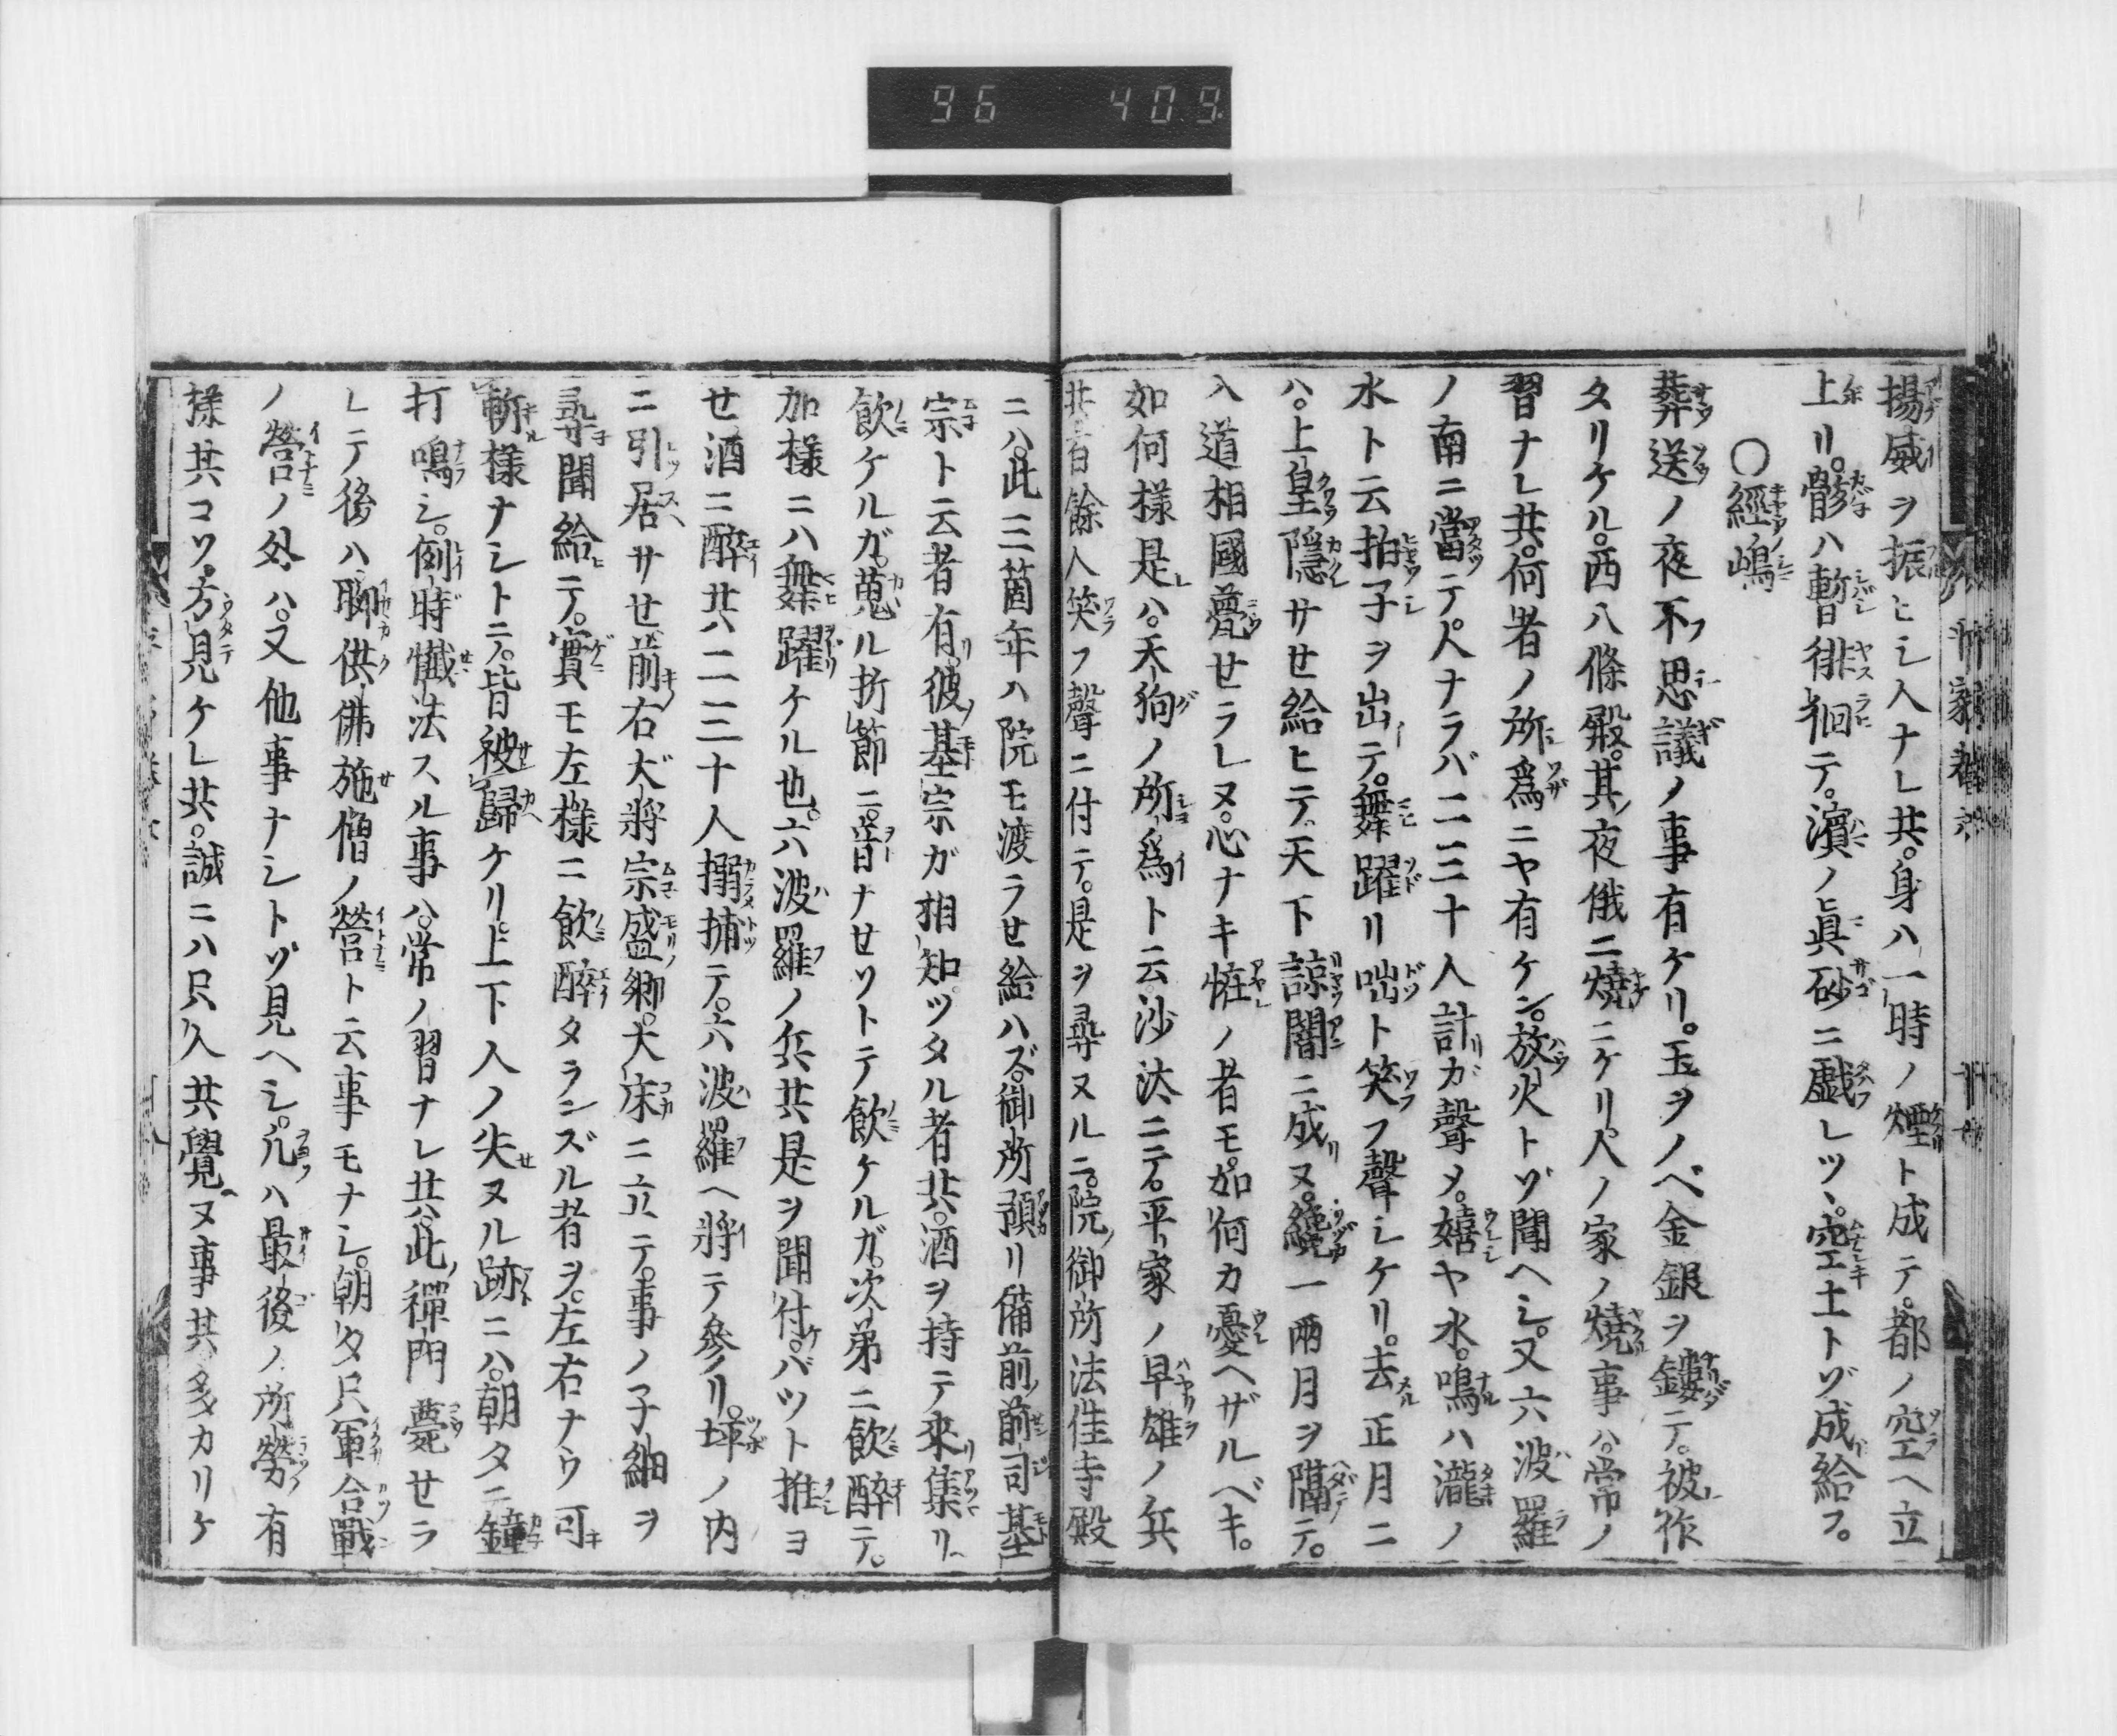 96 409
揚威ヲ振ヒシ人ナレ共。身ハ一時ノ煙ト成テ。都ノ空ヘ立
上リ。骸ハ暫徘徊テ。濱ノ眞砂ニ戯レツヽ空土トゾ成給フ。
〇經嶋
葬送ノ夜不思議ノ事有ケリ。玉ヲノベ金銀ヲ鏤テ。被作
タリケル。西八條殿。其夜俄ニ燒ニケリ。人ノ家ノ燒事ハ。常ノ
習ナレ共。何者ノ所爲ニヤ有ケン。放火トゾ聞ヘシ。又六波羅
ノ南ニ當テ。人ナラバ二三十人計ガ聲メ。嬉ヤ水。鳴ハ瀧ノ
水ト云拍子ヲ出テ。舞躍リ咄ト笑フ聲シケリ。去正月ニ
ハ。上皇隱サせ給ヒテ。天下諒闇ニ成ヌ。纔一兩月ヲ隔テ。
入道相國薨せラレヌ。心ナキ恠ノ者モ。如何カ憂ヘザルベキ。
如何樣是ハ。天狗ノ所爲ト云沙汰ニテ。平家ノ早雄ノ兵
共百餘人笑フ聲ニ付テ。是ヲ尋ヌルニ。院御所法住寺殿
ニハ。此三箇年ハ院モ渡ラせ給ハズ。御所預リ備前前司基
宗ト云者有。彼基宗ガ相知ツタル者共。酒ヲ持テ來集リ
飮ケルガ。蒐ル折節ニ。音ナせソトテ飮ケルガ。次第ニ飮醉テ。
加樣ニハ舞躍ケル也。六波羅ノ兵共是ヲ聞付。バツト推ヨ
せ酒ニ醉共二三十人搦捕テ。六波羅ヘ將テ參リ。坪ノ内
ニ引居サせ。前右大將宗盛卿。大床ニ立テ。事ノ子細ヲ
尋聞給テ。實モ左樣ニ飮醉タランズル者ヲ。左右ナウ可
斬樣ナシトテ。皆被歸ケリ。上下人ノ失ヌル跡ニハ。朝タニ鐘
打鳴シ。例時懺法スル事ハ。常ノ習ナレ共。此禪門薨せラ
レテ後ハ。聊供佛施僧ノ營ト云事モナシ。朝タ只軍合戰
ノ營ノ外ハ。又他事ナシトゾ見ヘシ。凡ハ最後ノ所勞ノ有
樣共コソ。方見ケレ共。誠ニハ只人共覺ヌ事共多カリケ